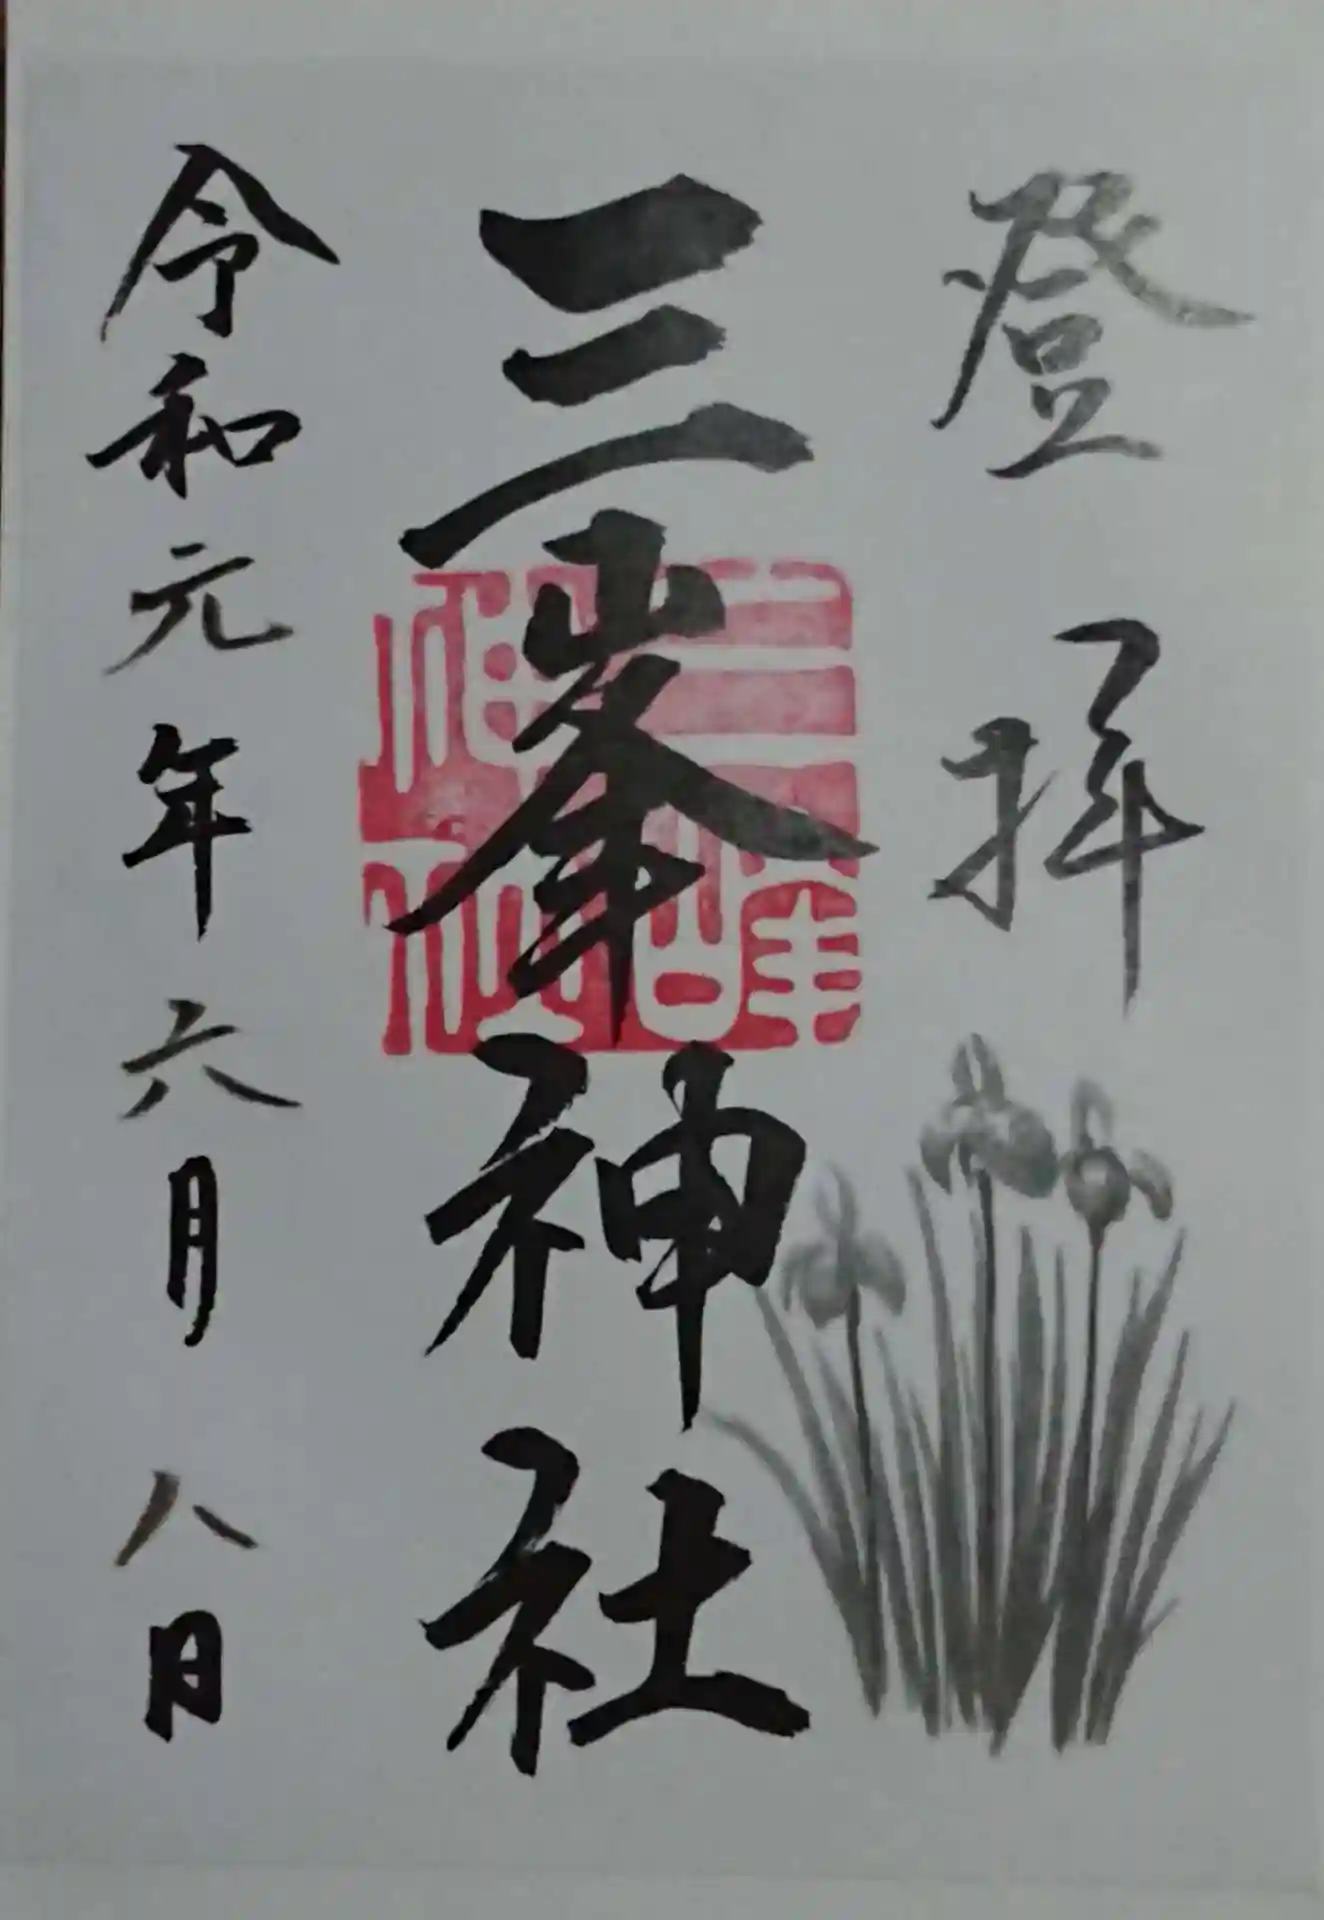 登拝
三峯神社
三峰神社
令和元年六月八日